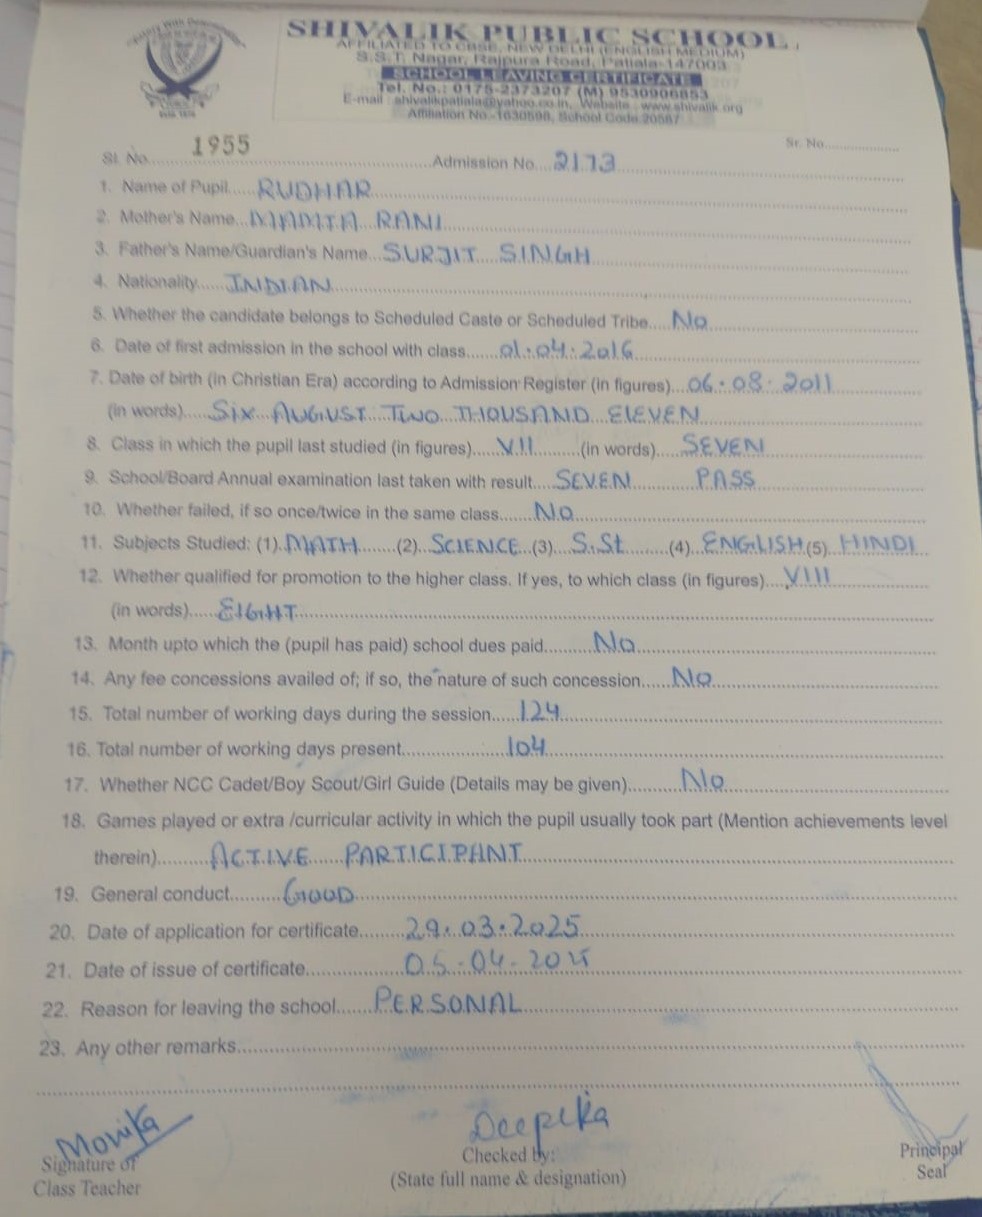 SHIVALIK PUBLIC SCHOOL
AFFILIATED TO CBSE, NEW DELHI (ENGLISH MEDIUM)
S.S.T. Nagar, Rajpura Road, Patiala-147003
SCHOOL LEAVING CERTIFICATE
Tel. No.: 0175-2373207 (M) 9530906853
E-mail : shivalikpatiala@yahoo.co.in, Website : www.shivalik.org
Affiliation No.-1630598, School Code 20587
Sr. No....................
Sl. No....... 1955 ..........Admission No....2173
1. Name of Pupil......RUDHAR
2. Mother's Name...MAMTA RANI
3. Father's Name/Guardian's Name...SURJIT SINGH
4. Nationality......INDIAN
5. Whether the candidate belongs to Scheduled Caste or Scheduled Tribe....No
6. Date of first admission in the school with class......01.04.2016
7. Date of birth (in Christian Era) according to Admission Register (in figures)...06.08.2011
(in words).....Six AUGUST TWO THOUSAND ELEVEN
8. Class in which the pupil last studied (in figures).....VII..........(in words).....SEVEN
9. School/Board Annual examination last taken with result....SEVEN PASS
10. Whether failed, if so once/twice in the same class.......No
11. Subjects Studied: (1).MATH.......(2)..SCIENCE...(3)...S.St.........(4)...ENGLISH.(5)..HINDI
12. Whether qualified for promotion to the higher class. If yes, to which class (in figures)....VIII
(in words)......EIGHT
13. Month upto which the (pupil has paid) school dues paid..........No
14. Any fee concessions availed of; if so, the nature of such concession......No
15. Total number of working days during the session......124
16. Total number of working days present....................104
17. Whether NCC Cadet/Boy Scout/Girl Guide (Details may be given)...........No
18. Games played or extra /curricular activity in which the pupil usually took part (Mention achievements level
therein)..........ACTIVE PARTICIPANT
19. General conduct..........GOOD
20. Date of application for certificate........29.03.2025
21. Date of issue of certificate.................05-04-2025
22. Reason for leaving the school.......PERSONAL
23. Any other remarks
Monika
Signature of
Class Teacher
Deepika
Checked by:
(State full name & designation)
Principal
Seal